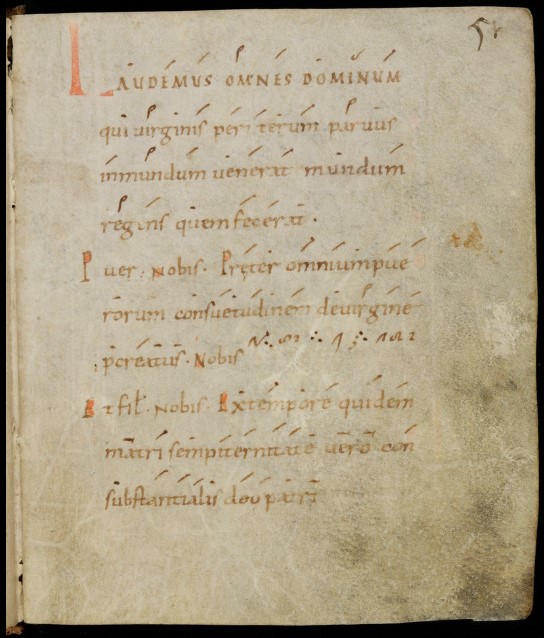 LAUDEMUS OMNES DOMINUM
qui virginis per uterum parvus
in mundum venerat mundum
regens quem fecerat.
Puer. Nobis. Preter omnium pue
rorum consuetudinem de virgine
procreatus. Nobis
Et fil. Nobis. Ex tempore quidem
matri sempiternitate vero con
substantialis deo patri